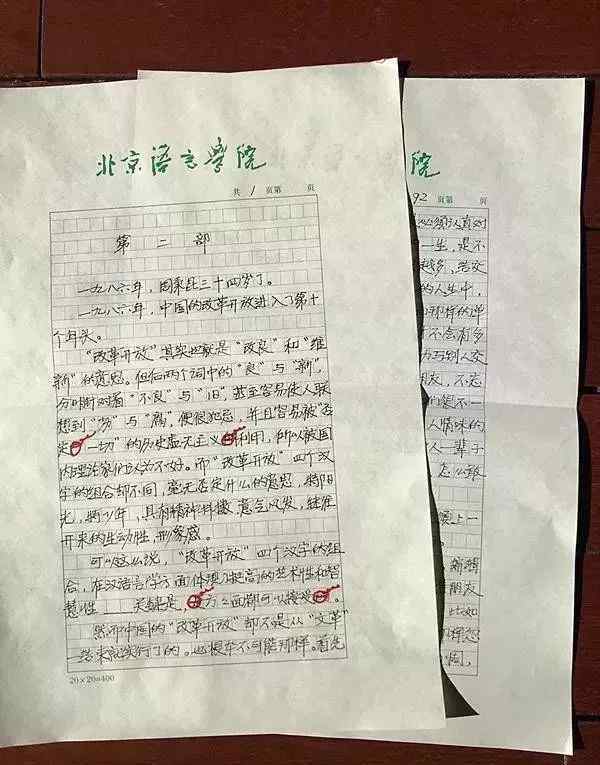 北京语言学院
共 1 页第 页
第二部
一九八六年，周秉昆三十四岁了。
一九八六年，中国的改革开放进入了第十
个年头。
“改革开放”其实也就是“改良”和“维
新”的意思。但后两个词中的“良”与“新”，
分明对着“不良”与“旧”，甚至容易使人联
想到“劣”与“腐”，便很犯忌，并且容易被“否
定一切”的历史虚无主义利用，所以被国
内理论家们认为不好。而“改革开放”四个汉
字的组合却不同，毫无否定什么的意思，
光，具有精神抖擞、意气风发，继往
开来的生动性，形象感。
可以这么说，“改革开放”四个汉字的组
合，在汉语言学方面体现了极高的艺术性和智
慧性 关键是，方方面面都可以接受。
然而中国的“改革开放”却不是从“文革”
结束就实行了的。也根本不可能那样。首先
20×20=400
院
92 页第 页
必须认真对
一生，是不
越多，结交
的人生中，
那样的逆
不会有多
与别人交
朋友，不忘
想不一
人情味的
人一辈子
怎么报
上一
朋友
比如